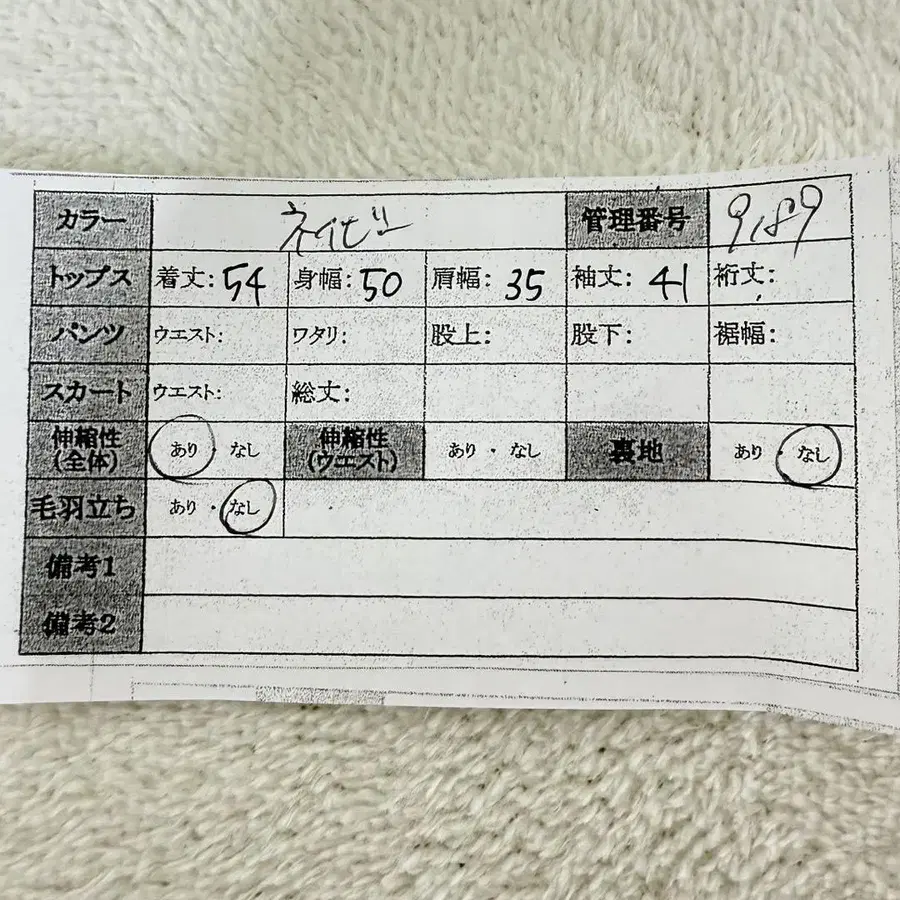 カラー ネイビー 管理番号 9189
トップス 着丈: 54 身幅: 50 肩幅: 35 袖丈: 41 裄丈:
パンツ ウエスト: ワタリ: 股上: 股下: 裾幅:
スカート ウエスト: 総丈:
伸縮性(全体) あり・なし 伸縮性(ウエスト) あり・なし 裏地 あり・なし
毛羽立ち あり・なし
備考1
備考2